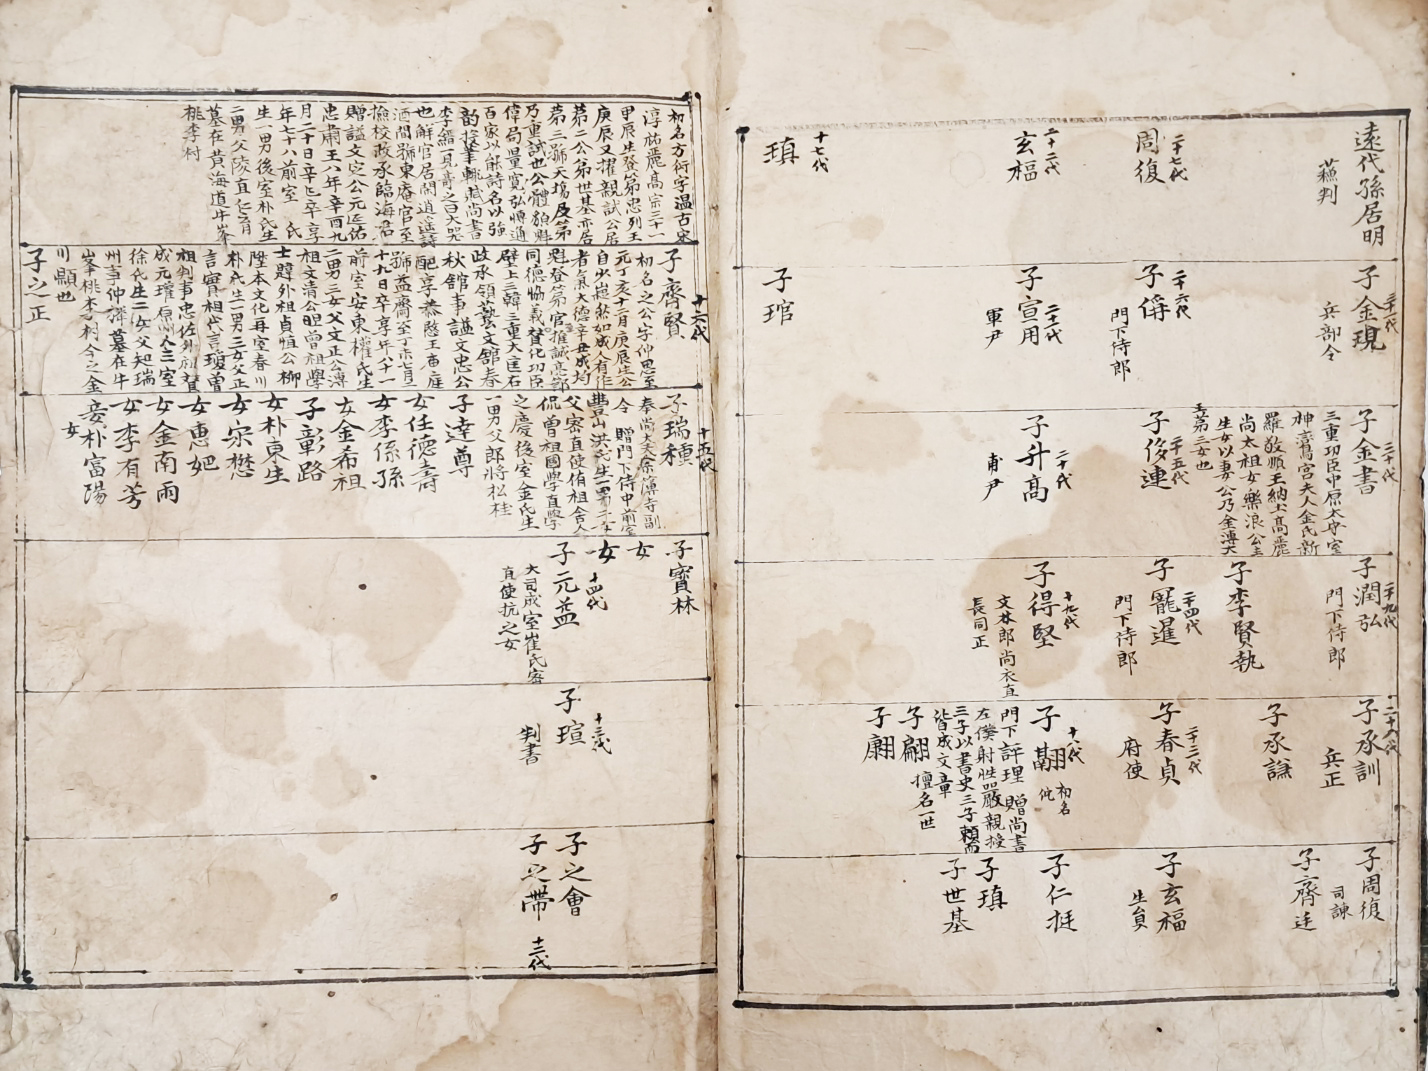 遠代孫居明
蘓判
二十七代
周復
二十二代
玄福
十七代
瑱
三十一代
子金現
兵部令
二十六代
子偁
門下侍郎
二十一代
子宣用
軍尹
子琯
三十代
子金書
三重功臣中原太守室
神鸞宮夫人金氏新
羅敬順王納土高麗
尚太祖女樂浪公主
生女以妻公乃金溥大
王第三女也
二十五代
子侈連
二十代
子升高
甫尹
二十九代
子潤弘
門下侍郎
子李賢執
二十四代
子寵暹
門下侍郎
十九代
子得堅
文林郎尚衣直
長同正
二十八代
子承訓
兵正
子承謙
二十三代
子春貞
府使
十八代
子翮
初名
門下評理 贈尚書
左僕射性嚴親授
三子以書史三子
皆成文章
擅名一世
子翩
子翩
子周復
司諫
子齊廷
子玄福
生員
子仁挺
子瑱
子世基
初名方衍字温古宋
淳祐麗高宗三十一
甲辰生登第忠列王
庚辰又擢親試公居
第二公弟世基亦居
第三號天場及第
乃重試也公體貌魁
偉局量寬弘博通
百家以能詩名以強
韵授筆輒賦尚書
李縉一見奇之曰大器
也解官居閑逍遥詩
酒間號東庵官至
檢校政丞臨海君
贈謚文定公元延祐
忠肅王八年辛酉九
月二十日辛巳卒享
年七十八前室 氏
生一男後室朴氏生
二男父陵直仁育
墓在黄海道牛峯
桃李村
十六代
子齊賢
初名之公字仲思至
元丁亥十二月庚辰生公
自少嶷然如成人有作
者氣大德辛丑成均
魁登第官推誠亮節
同德恊義賛化功臣
壁上三韓三重大匡右
政丞領藝文館春
秋館事謚文忠公
配享恭愍王廟庭
號益齋至丁未七月
十九日卒享年八十一
前室安東權氏生
二男三女父文正公溥
祖文清公㫜曾祖學
士韙外祖貞慎公柳
陞本文化再室春川
朴氏生一男三女父正
言實祖代言瓊曾
祖判事忠佐外祖賛
成元瓘原州人三室
徐氏生二女父知瑞
州事仲祥墓在牛
峯桃李村今之金
川顯也
子之正
十五代
子瑞種
奉尚大夫宗簿寺副
令 贈門下侍中前室
豐山洪氏生一男二女
父宻直使侑祖舍人
侃曾祖國學直學
之慶後室金氏生
一男父郎將松桂
子達尊
女任德壽
女李係孫
女金希祖
子彰路
女朴東生
女宗懋
女惠妃
女金南雨
女李有芳
妾朴富陽
女
子寳林
女
女
十四代
子元益
大司成室崔氏宻
直使抗之女
十三代
子瑄
判書
子之會
子之帶
十二代